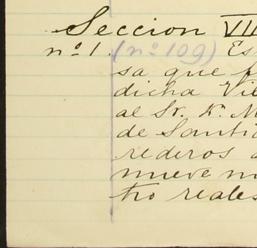 Seccion VII
nº 1. (nº 109) Es
sa que f
dicha Vil
al Sr. K. M
de Santi
rederos d
mueve m
tro reales